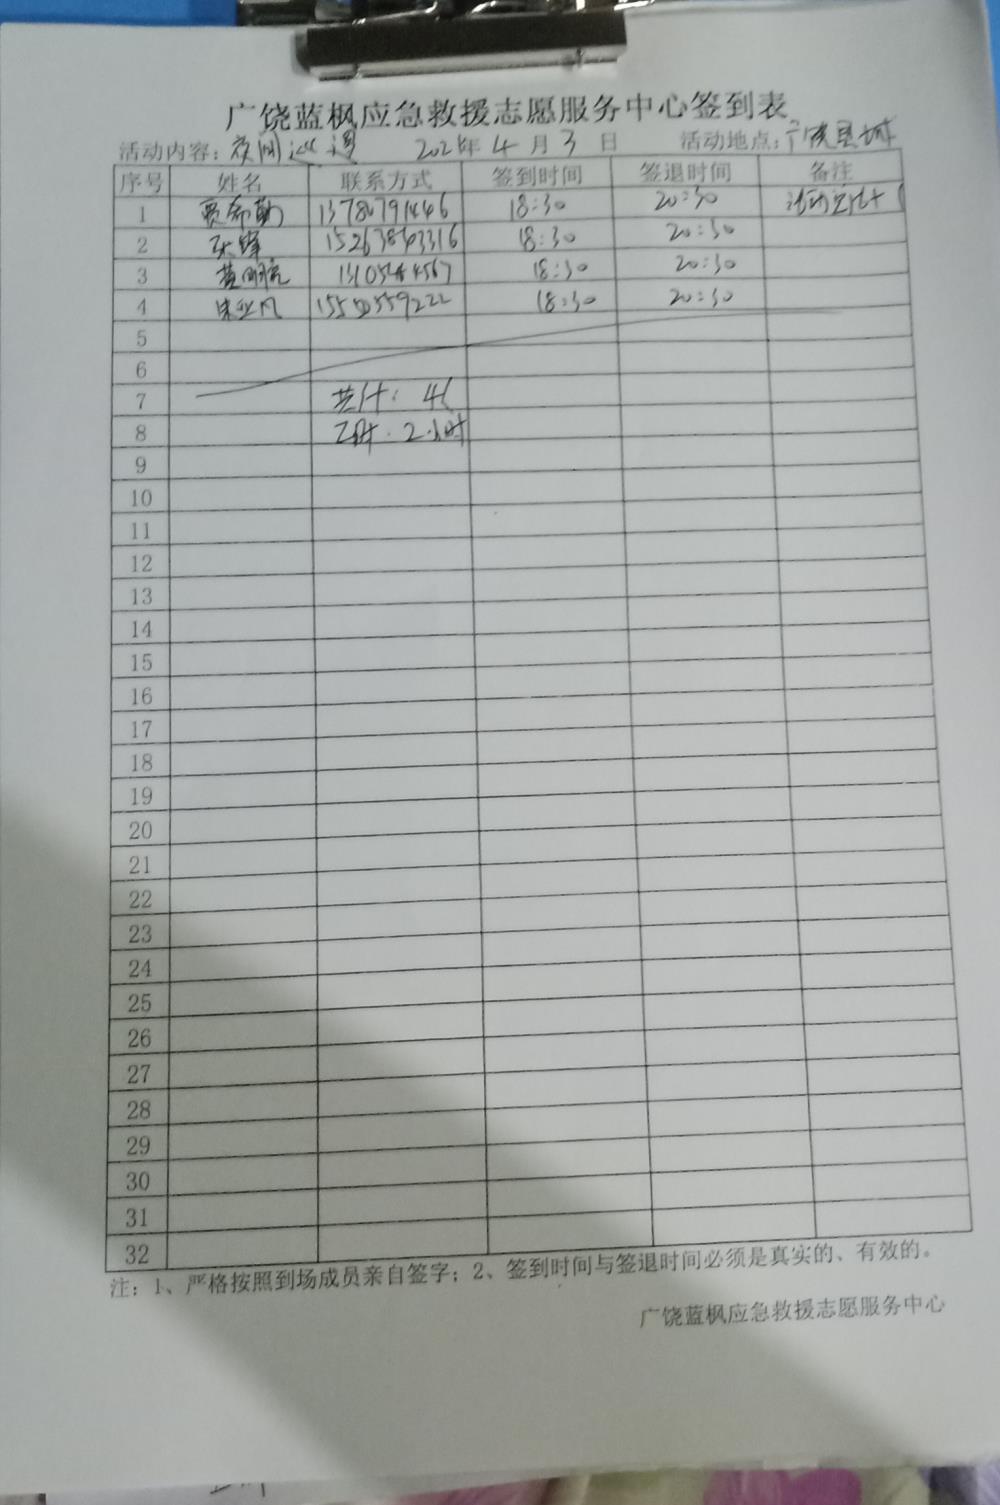 广饶蓝枫应急救援志愿服务中心签到表
活动内容：夜间巡逻 2021年 4 月 3 日 活动地点：广饶县城
序号 姓名 联系方式 签到时间 签退时间 备注
1 13780791446 18:30 20:30
2 15263803316 18:30 20:30
3 18:30 20:30
4 15550559222 18:30 20:30
5
6
7 共计：4人
8 2小时
9
10
11
12
13
14
15
16
17
18
19
20
21
22
23
24
25
26
27
28
29
30
31
32
注：1、严格按照到场成员亲自签字；2、签到时间与签退时间必须是真实的、有效的。
广饶蓝枫应急救援志愿服务中心